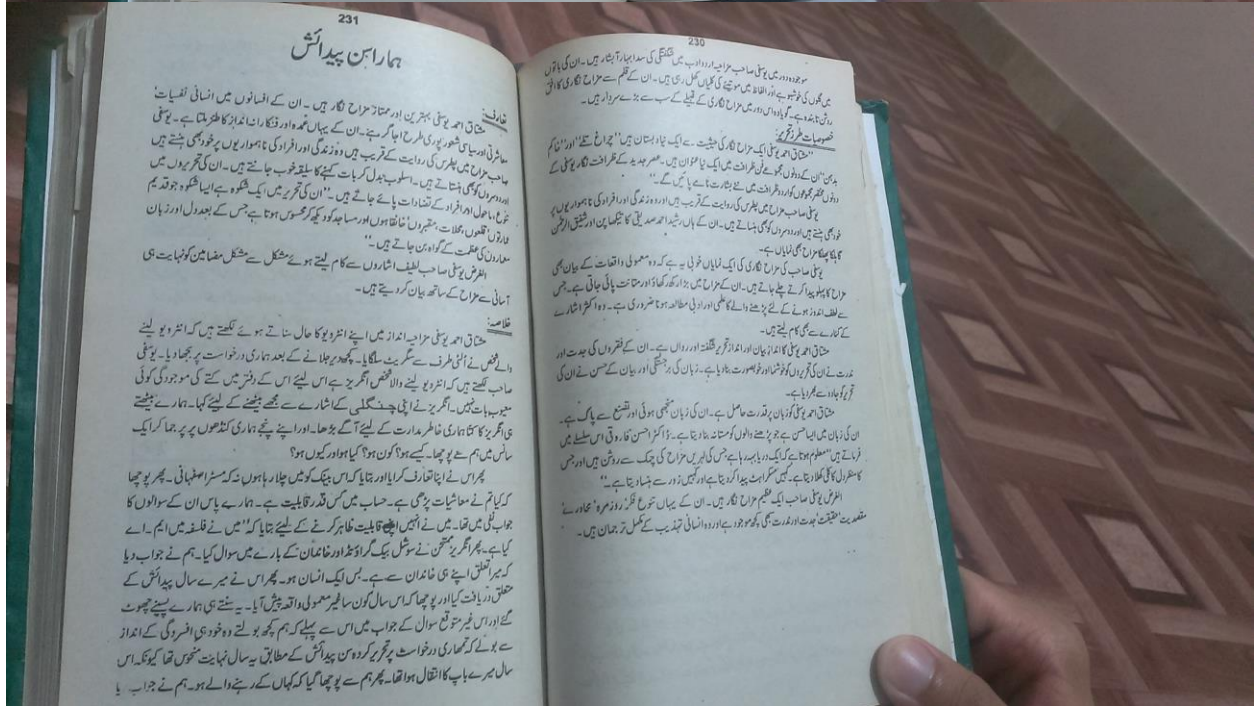 230
موجودہ دور میں یوسفی صاحب مزاحیہ اردو ادب میں شگفتگی کی سدا بہار آبشار ہیں۔ ان کی باتوں
میں گلوں کی خوشبو ہے اور الفاظ میں موتیے کی کلیاں کھل رہی ہیں۔ ان کے قلم سے مزاح نگاری کا افق
روشن تابندہ ہے۔ گویا وہ اس دور میں مزاح نگاری کے قبیلے کے سب سے بڑے سردار ہیں۔
خصوصیات طرز تحریر:
"مشتاق احمد یوسفی ایک مزاح نگار کی حیثیت سے ایک نیا دبستان ہیں" "چراغ تلے" اور "خاکم
بدہن" ان کے دونوں مجموعے فن ظرافت میں ایک نیا عنوان ہیں۔ عصر جدید کے ظرافت نگار یوسفی کے
دونوں مختصر مجموعوں کو اردو ظرافت میں نئے بشارت نامے پائیں گے۔"
یوسفی صاحب مزاح میں پطرس کی روایت کے قریب ہیں اور وہ زندگی اور افراد کی ناہمواریوں پر
خود بھی ہنستے ہیں اور دوسروں کو بھی ہنساتے ہیں۔ ان کے ہاں رشید احمد صدیقی کا تیکھا پن اور شفیق الرحمٰن
کا ہلکا پھلکا مزاح بھی نمایاں ہے۔
یوسفی صاحب کی مزاح نگاری کی ایک نمایاں خوبی یہ ہے کہ وہ معمولی واقعات کے بیان بھی
مزاح کا پہلو پیدا کرتے چلے جاتے ہیں۔ ان کے مزاح میں بڑا رکھ رکھاؤ اور متانت پائی جاتی ہے۔ جس
سے لطف اندوز ہونے کے لئے پڑھنے والے کا علمی اور ادبی مطالعہ ہونا ضروری ہے۔ وہ اکثر اشارے
کے کنارے سے بھی کام لیتے ہیں۔
مشتاق احمد یوسفی کا انداز بیان اور انداز تحریر شگفتہ اور رواں ہے۔ ان کے فقروں کی جدت اور
ندرت نے ان کی تحریروں کو خوشنما اور خوبصورت بنا دیا ہے۔ زبان کی برجستگی اور بیان کے حسن نے ان کی
تحریر کو جادو سے بھر دیا ہے۔
مشتاق احمد یوسفی کو زبان پر قدرت حاصل ہے۔ ان کی زبان منجھی ہوئی اور تصنع سے پاک ہے۔
ان کی زبان میں ایسا حسن ہے جو پڑھنے والوں کو مستانہ بنا دیتا ہے۔ ڈاکٹر احسن فاروقی اس سلسلے میں
فرماتے ہیں "معلوم ہوتا ہے کہ ایک دریا بہہ رہا ہے جس کی لہریں مزاح کی چمک سے روشن ہیں اور جس
کا منظر دل کا کلی کھلا دیتا ہے۔ کہیں مسکراہٹ پیدا کر دیتا ہے اور کہیں زور سے ہنسا دیتا ہے۔"
الغرض یوسفی صاحب ایک عظیم مزاح نگار ہیں۔ ان کے یہاں تنوع فکر' روزمرہ' محاورے'
مقصدیت' حقیقت' جدت اور ندرت سبھی کچھ موجود ہے اور وہ انسانی تہذیب کے مکمل ترجمان ہیں۔
231
ہمارا بن پیدائش
تعارف:
مشتاق احمد یوسفی بہترین اور ممتاز مزاح نگار ہیں۔ ان کے افسانوں میں انسانی نفسیات'
معاشرتی اور سیاسی شعور پوری طرح اجاگر ہے۔ ان کے یہاں عمدہ اور فنکارانہ انداز کا طنز ملتا ہے۔ یوسفی
صاحب مزاح میں پطرس کی روایت کے قریب ہیں وہ زندگی اور افراد کی ناہمواریوں پر خود بھی ہنستے ہیں
اور دوسروں کو بھی ہنساتے ہیں۔ اسلوب بدل کر بات کہنے کا سلیقہ خوب جانتے ہیں۔ ان کی تحریروں میں
تنوع، ماحول اور افراد کے تضادات پائے جاتے ہیں۔ "ان کی تحریر میں ایک شکوہ ہے ایسا شکوہ جو قدیم
عمارتوں' قلعوں، محلات، مقبروں' خانقاہوں اور مساجد کو دیکھ کر محسوس ہوتا ہے جس کے بعد دل اور زبان
معماروں کی عظمت کے گواہ بن جاتے ہیں۔"
الغرض یوسفی صاحب لطیف اشاروں سے کام لیتے ہوئے مشکل سے مشکل مضامین کو نہایت ہی
آسانی سے مزاح کے ساتھ بیان کر دیتے ہیں۔
خلاصہ:
مشتاق احمد یوسفی مزاحیہ انداز میں اپنے انٹرویو کا حال سناتے ہوئے لکھتے ہیں کہ انٹرویو لینے
والے شخص نے الٹی طرف سے سگریٹ سلگایا۔ کچھ دیر جلانے کے بعد ہماری درخواست پر بجھا دیا۔ یوسفی
صاحب لکھتے ہیں کہ انٹرویو لینے والا شخص انگریز ہے اس لیئے اس کے دفتر میں کتے کی موجودگی کوئی
معیوب بات نہیں۔ انگریز نے اپنی چنگلی کے اشارے سے مجھے بیٹھنے کے لیئے کہا۔ ہمارے بیٹھتے
ہی انگریز کا کتا ہماری خاطر مدارت کے لیئے آگے بڑھا۔ اور اپنے پنجے ہماری کندھوں پر پر جما کر ایک
سانس میں ہم سے پوچھا۔ کیسے ہو؟ کون ہو؟ کیا ہو اور کیوں ہو؟
پھر اس نے اپنا تعارف کرایا اور بتایا کہ اس بینک کو میں چلا رہا ہوں نہ کہ مسٹر اصفہانی۔ پھر پوچھا
کہ کیا تم نے معاشیات پڑھی ہے۔ حساب میں کس قدر قابلیت ہے۔ ہمارے پاس ان کے سوالوں کا
جواب نفی میں تھا۔ میں نے انہیں اپنی قابلیت ظاہر کرنے کے لیئے بتایا کہ "میں نے فلسفہ میں ایم۔اے
کیا ہے۔ پھر انگریز ممتحن نے سوشل بیک گراؤنڈ اور خاندان کے بارے میں سوال کیا۔ ہم نے جواب دیا
کہ میرا تعلق اپنے ہی خاندان سے ہے۔ بس ایک انسان ہو۔ پھر اس نے میرے سال پیدائش کے
متعلق دریافت کیا اور پوچھا کہ اس سال کون سا غیر معمولی واقعہ پیش آیا۔ یہ سنتے ہی ہمارے پسینے چھوٹ
گئے اور اس غیر متوقع سوال کے جواب میں اس سے پہلے کہ ہم کچھ بولتے وہ خود ہی افسردگی کے انداز
سے بولے کہ تمھاری درخواست پر تحریر کردہ سن پیدائش کے مطابق یہ سال نہایت منحوس تھا کیونکہ اس
سال میرے باپ کا انتقال ہوا تھا۔ پھر ہم سے پوچھا گیا کہ کہاں کے رہنے والے ہو۔ ہم نے جواب دیا